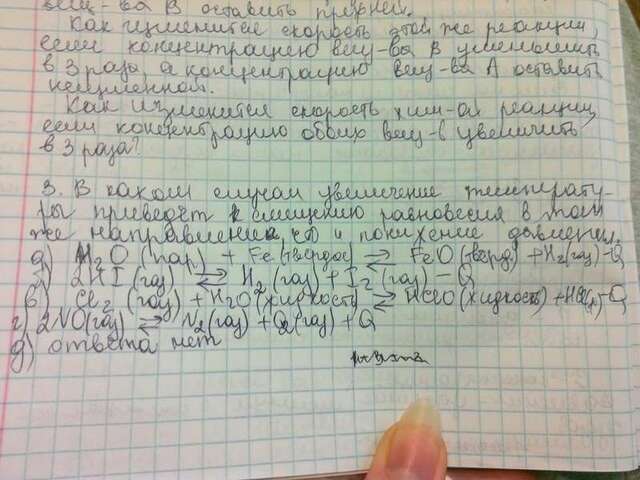 вещ-ва В оставить прежней.
Как изменится скорость этой же реакции,
если концентрацию вещ-ва В уменьшить
в 3 раза, а концентрацию вещ-ва А оставить
неизменной.
Как изменится скорость хим-ой реакции,
если концентрацию обоих вещ-в увеличить
в 3 раза?
3. В каком случаи увеличение температу-
ры приведёт к смещению равновесия в том
же направлении, что и понижение давления.
а) H2O (пар) + Fe (твёрдое) ⇌ FeO (твёрд) + H2 (газ) - Q
б) 2HI (газ) ⇌ H2 (газ) + I2 (газ) - Q
в) Cl2 (газ) + H2O (жидкость) ⇌ HClO (жидкость) + HCl(ж) - Q
г) 2NO (газ) ⇌ N2 (газ) + O2 (газ) + Q
д) ответа нет